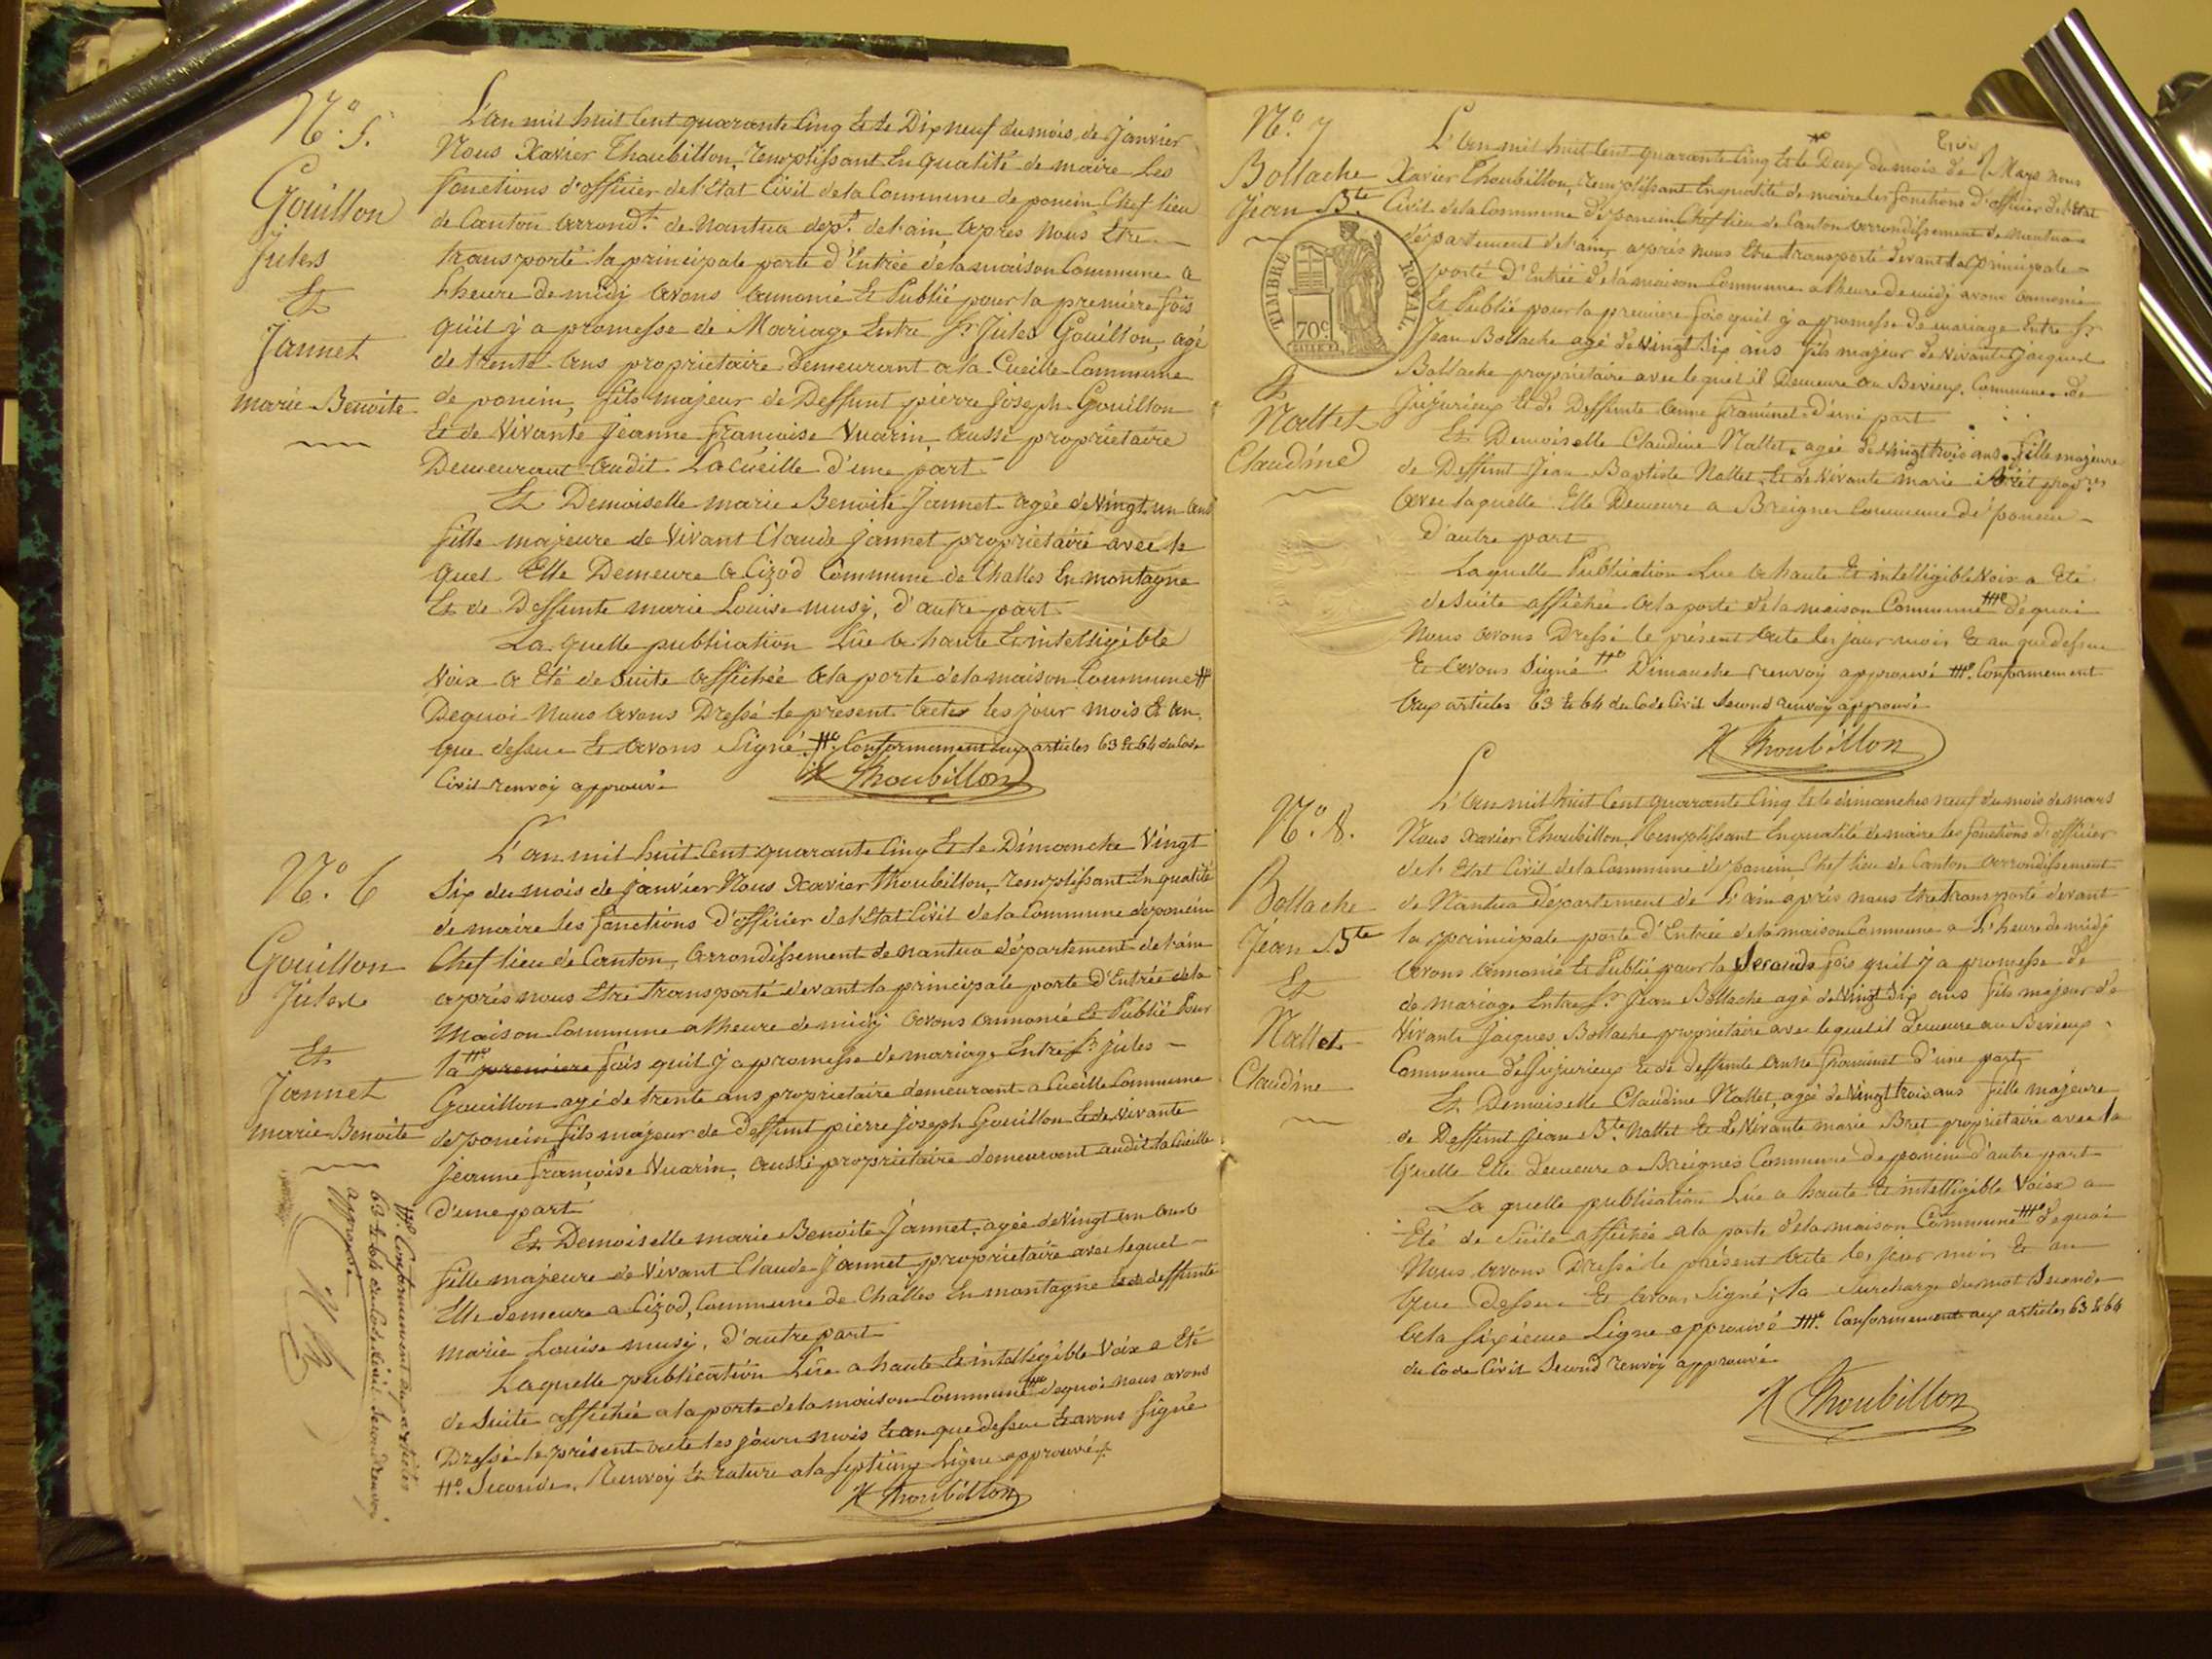 N.o 5.
Gouillon
Jules
Et
Jannet
marie Benoite
L'an mil huit Cent quarante Cinq Et le Dix neuf du mois de Janvier
Nous Xavier Thoubillon, remplissant En qualité de maire Les
fonctions d'officier de l'Etat Civil de la Commune de poncin Chef lieu
de Canton arrondt. de Nantua dept. de l'ain, après nous Etre
transporté la principale porte d'Entrée de la maison Commune a
l'heure de midy avons annoncé Et Publié pour la première fois
qu'il y a promesse de Mariage Entre Sr. Jules Gouillon, agé
de trente ans propriétaire Demeurant a la Cueille Commune
de poncin, fils majeur de Deffunt pierre Joseph Gouillon
Et de Vivante Jeanne francoise Vuarin aussi propriétaire
Demeurant audit La Cueille d'une part
Et Demoiselle marie Benoite Jannet agée de Vingt un ans
fille majeure de Vivant Claude Jannet propriétaire avec le
quel Elle Demeure a Cizod Commune de Challes En montagne
Et de Deffunte marie Louise musy, d'autre part
La quelle publication Lue a haute Et intelligible
Voix a Eté de suite affichée a la porte de la maison Commune #
Dequoi Nous avons Dressé le présent acte les jour mois Et an
que dessus Et avons Signé. #o. Conformement aux articles 63 Et 64 du Code
Civil renvoy approuvé
X Thoubillon
N.o 6
Gouillon
Jules
Et
Jannet
marie Benoite
L'an mil huit Cent quarante Cinq Et le Dimanche Vingt
Six du mois de janvier Nous Xavier Thoubillon, remplissant En qualité
de maire les fonctions d'officier de l'Etat Civil de la Commune de poncin
Chef lieu de Canton, arrondissement de nantua département de l'ain
après nous Etre transporté devant la principale porte d'Entrée de la
Maison Commune a l'heure de midy avons annoncé Et Publié Pour
la #o premiere fois qu'il y a promesse de mariage Entre Sr. Jules
Gouillon agé de trente ans propriétaire demeurant a Cueille Commune
de poncin fils majeur de deffunt pierre Joseph Gouillon Et de Vivante
Jeanne françoise Vuarin, aussi propriétaire demeurant audit la Cueille
d'une part
Et Demoiselle marie Benoite Jannet, agée de Vingt un ans
fille majeure de Vivant Claude Jannet propriétaire avec lequel
Elle demeure a Cizod, Commune de Challes En montagne Et de deffunte
marie Louise musy, d'autre part
Laquelle publication Lüe a haute Et intelligible Voix a Eté
de Suite affichée a la porte de la maison Commune ##o dequoi nous avons
Dressé le présent acte les jour mois Et an que dessus Et avons Signé
#o. Seconde. Renvoy Et rature a la Septieme Ligne approuvés
X Thoubillon
##o. Conformement aux articles
63 Et 64 du Code Civil. Second renvoy
approuvé
N.o 7
Bollache
Jean Bte
TIMBRE ROYAL.
70c
Et
Nallet
Claudine
L'an mil huit Cent quarante Cinq Et le #o Deux du mois de Mars nous
Xavier Thoubillon, remplissant En qualité de maire les fonctions d'officier de l'Etat
Civil de la Commune de poncin Chef lieu de Canton arrondissement de Nantua
département de l'ain, après nous Etre transporté devant la principale
porte d'Entrée de la maison Commune a l'heure de midy avons annoncé
Et Publié pour la premiere fois quil y a promesse de mariage Entre Sr.
Jean Bollache agé de Vingt Six ans fils majeur de Vivant Jacques
Bollache propriétaire avec lequel il Demeure au Bevieux, Commune de
Jujurieux Et de Deffunte Anne framinet d'une part
Et Demoiselle Claudine Nallet, agée de Vingt trois ans, fille majeure
de Deffunt Jean Baptiste Nallet, Et de Vivante marie Bret propre.
avec laquelle Elle Demeure a Breignes Commune de poncin
D'autre part
Laquelle Publication Lue a haute Et intelligible Voix a Eté
de Suite affichée a la porte de la maison Commune ##o dequoi
Nous avons Dressé le présent acte les jour mois Et an que dessus
Et avons Signé #o Dimanche renvoy approuvé ##o. Conformement
aux articles 63 Et 64 du Code Civil Second renvoy approuvé
X Thoubillon
N.o 8.
Bollache
Jean Bte
Et
Nallet
Claudine
L'an mil huit Cent quarante Cinq Et le dimanche neuf du mois de mars
Nous Xavier Thoubillon, Remplissant En qualité de maire les fonctions d'officier
de l'Etat Civil de la Commune de poncin Chef lieu de Canton arrondissement
de Nantua Département de l'ain après nous Etre transporté devant
la principale porte d'Entrée de la maison Commune a L'heure de midy
avons annoncé Et Publié pour la Seconde fois qu'il y a promesse de
de mariage Entre Sr. Jean Bollache agé de Vingt Six ans fils majeur de
Vivant Jacques Bollache propriétaire avec lequel il demeure au Bevieux
Commune de Jujurieux Et de deffunte Anne framinet d'une part
Et Demoiselle Claudine Nallet, agée de Vingt trois ans fille majeure
de Deffunt Jean Bte. Nallet Et de Vivante marie Bret propriétaire avec la
quelle Elle demeure a Breignes Commune de poncin d'autre part
La quelle publication Lue a haute Et intelligible Voix a
Eté de Suite affichée a la porte de la maison Commune ##o dequoi
Nous avons Dressé le présent acte les jour mois Et an
que Dessus Et avons Signé; la surcharge du mot Seconde
a la sixième Ligne approuvé ##o. Conformement aux articles 63 Et 64
du Code Civil Second renvoy approuvé
X Thoubillon